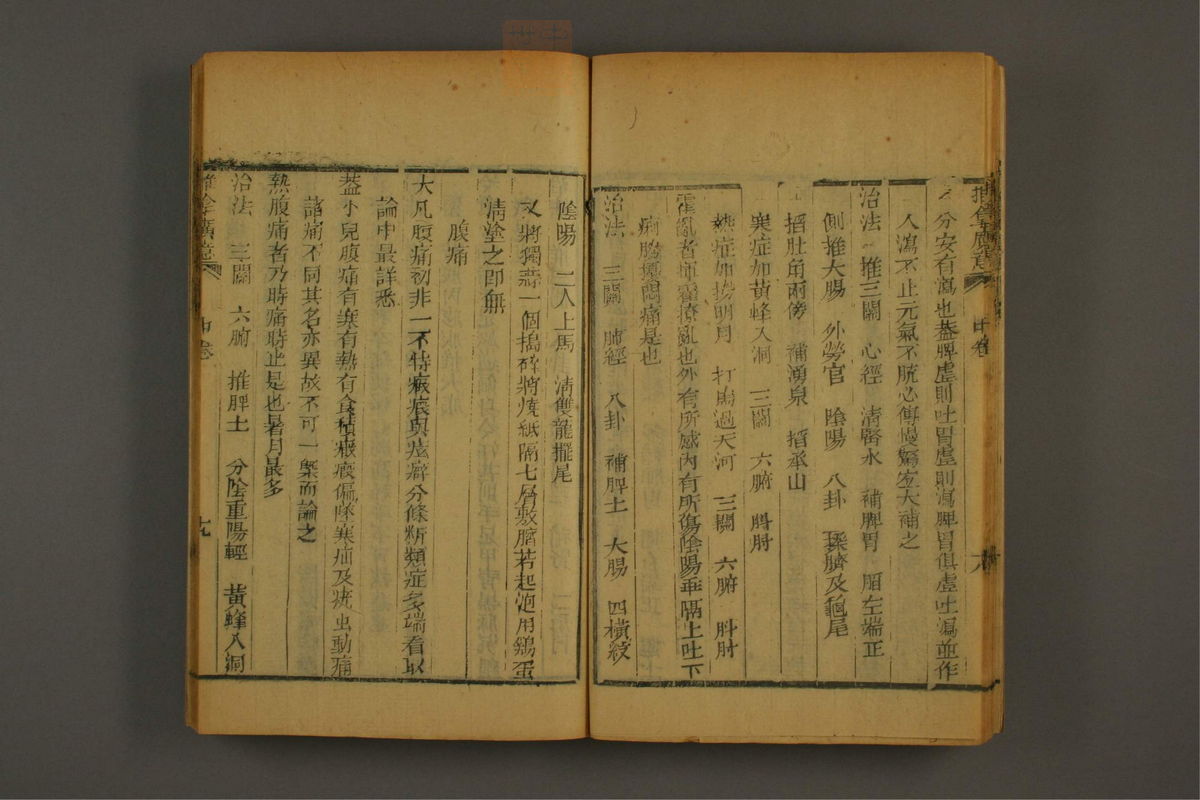 推拿廣意 中卷
又分安有瀉也蓋脾虛則吐胃虛則瀉脾胃俱虛吐瀉並作
久瀉不止元氣不脫必傳慢驚宜大補之
治法 推三關 心經 清腎水 補脾胃 掐左端正
側推大腸 外勞宮 陰陽 八卦 揉臍及龜尾
掐肚角兩傍 補湧泉 掐承山
寒症加黃蜂入洞 三關 六腑 肘
熱症加撈明月 打馬過天河 三關 六腑 肘
霍亂者揮霍撩亂也外有所感內有所傷陰陽乖隔上吐下
痢膓擾悶痛是也
治法 三關 肺經 八卦 補脾土 大腸 四橫紋
陰陽 二人上馬 清雙龍擺尾
又將獨蒜一個搗碎將燒紙隔七層敷臍若起泡用鷄蛋
清塗之即無
腹痛
大凡腹痛初非一不特癥瘕與痃癖分條析類症多端看取
論中最詳悉
蓋小兒腹痛有寒有熱有食積癥瘕偏墜寒疝及蚘虫動痛
諸痛不同其名亦異故不可一槩而論之
熱腹痛者乃時痛時止是也暑月最多
治法 三關 六腑 推脾土 分陰重陽輕 黃蜂入洞
推拿廣意 中卷 十九